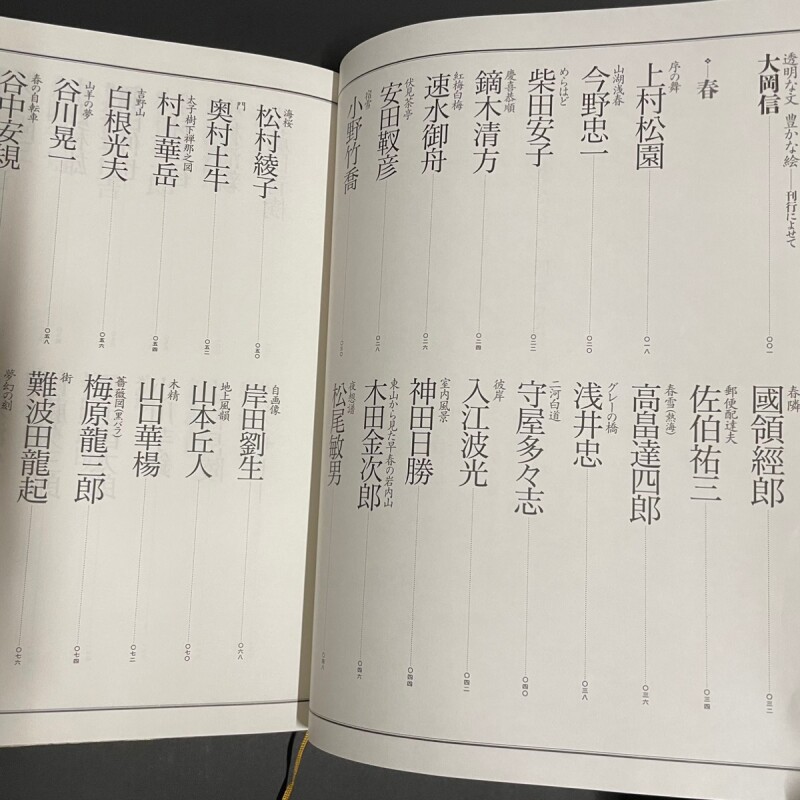 透明な文 豊かな絵 ── 刊行によせて
大岡信 〇〇一
春
序の舞
上村松園 〇一八
山湖浅春
今野忠一 〇二〇
めらはど
柴田安子 〇二二
慶喜恭順
鏑木清方 〇二四
紅梅白梅
速水御舟 〇二六
伏見茶亭
安田靫彦 〇二八
宿雪
小野竹喬 〇三〇
春隣
國領經郎 〇三二
郵便配達夫
佐伯祐三 〇三四
春雪(熱海)
高畠達四郎 〇三六
グレーの橋
浅井忠 〇三八
二河白道
守屋多々志 〇四〇
彼岸
入江波光 〇四二
室内風景
神田日勝 〇四四
東山から見た早春の岩内山
木田金次郎 〇四六
夜想譜
松尾敏男
海桜
松村綾子 〇五〇
門
奥村土牛 〇五二
太子樹下禅那之図
村上華岳 〇五四
吉野山
白根光夫 〇五六
山羊の夢
谷川晃一 〇五八
春の自転車
谷中安規
自画像
岸田劉生 〇六八
地上風韻
山本丘人 〇七〇
木精
山口華楊 〇七二
薔薇図(黒バラ)
梅原龍三郎 〇七四
街
難波田龍起 〇七六
夢幻の刻